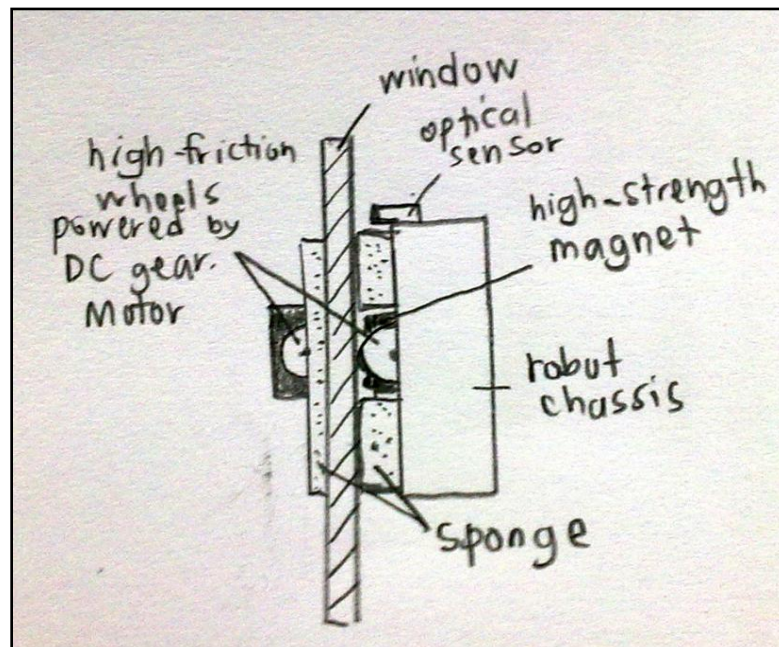 window
optical
sensor
high-friction
wheels
powered by
DC gear.
Motor
high-strength
magnet
robut
chassis
sponge